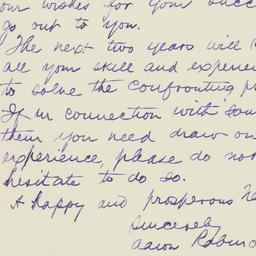 our wishes for your succ
go out to you.
The next two years will
all your skill and experien
to solve the confronting p
If in connection with som
them you need draw on
experience, please do no
hesitate to do so.
A happy and prosperous Ne
Sincerely
Aaron Robins